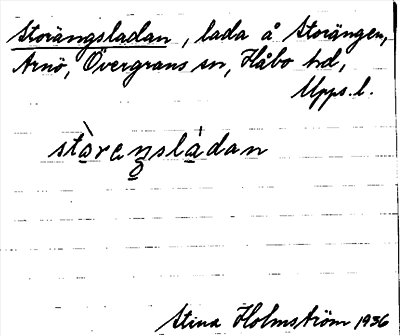 Storängsladan, lada å Storängen,
Arnö, Övergrans sn, Håbo hd,
Upps. l.
stàraŋslàdan
Stina Holmström 1936